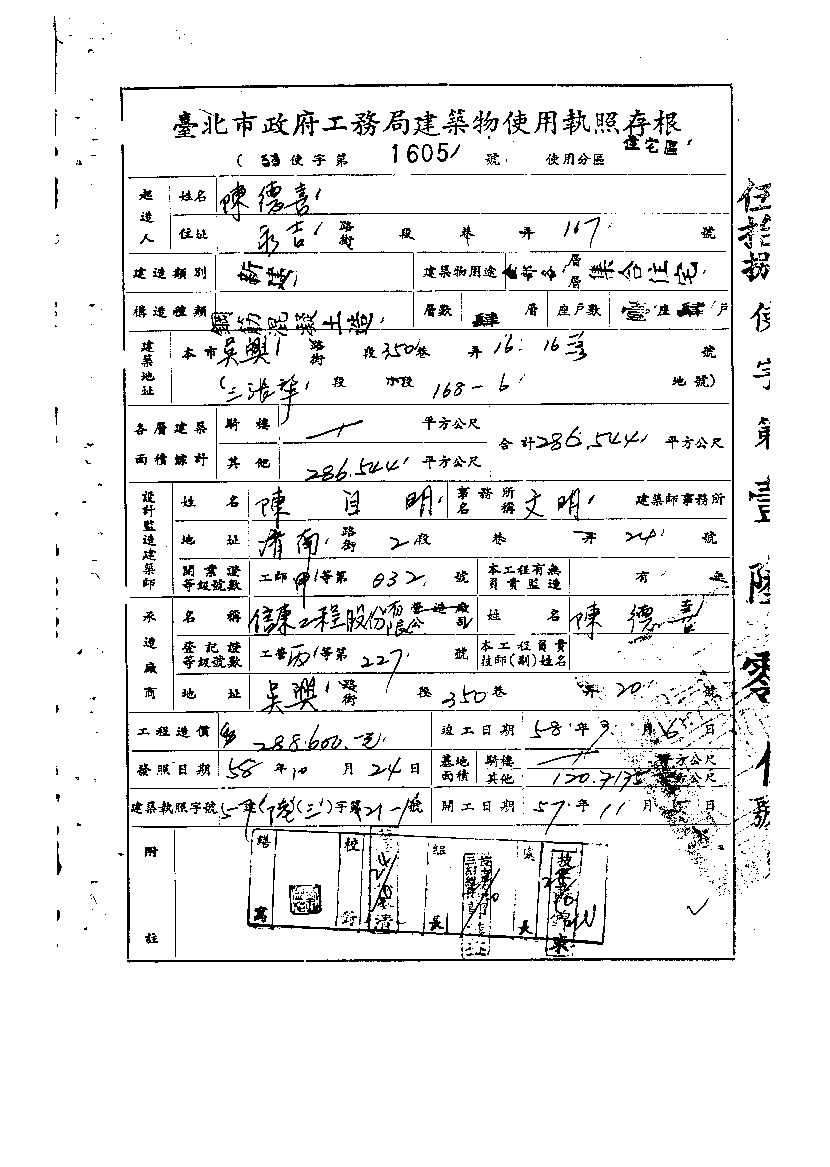 臺北市政府工務局建築物使用執照存根
(58使字第 1605 號 使用分區 住宅區
起造人 姓名 陳德喜
住址 永吉 路街 段 巷 弄 167 號
建造類別 新建 建築物用途 層層 集合住宅
構造種類 鋼筋混凝土造 層數 肆 層 座戶數 壹 座 肆 戶
建築地址 本市 吳興 路街 段 350 巷 弄 16. 16 號
(三張犁 段 小段 168-6 地號)
各層建築面積總計 騎樓 平方公尺 合計 286.544 平方公尺
其他 286.544 平方公尺
設計監造建築師 姓名 陳 明 事務所名稱 文明 建築師事務所
地址 濟南 路街 2 段 巷 弄 24 號
開業證等級號數 工師 甲 等第 032 號 本工程有無負責監造 有 無
承造廠商 名稱 信東工程股份有限公司 營造廠 姓名 陳德喜
登記證等級號數 工營 丙 等第 227 號 本工程負責技師(副)姓名
地址 吳興 路街 段 350 巷 弄 20 號
工程造價 288.600.-元 竣工日期 58 年 9 月 6 日
發照日期 58 年 10 月 24 日 基地面積 騎樓 平方公尺
其他 120.7135 平方公尺
建築執照字號 (三)字第 21-1 號 開工日期 57 年 11 月 日
附註
繕寫 校對 組長 處長
伍拾捌使字第壹陸零 號